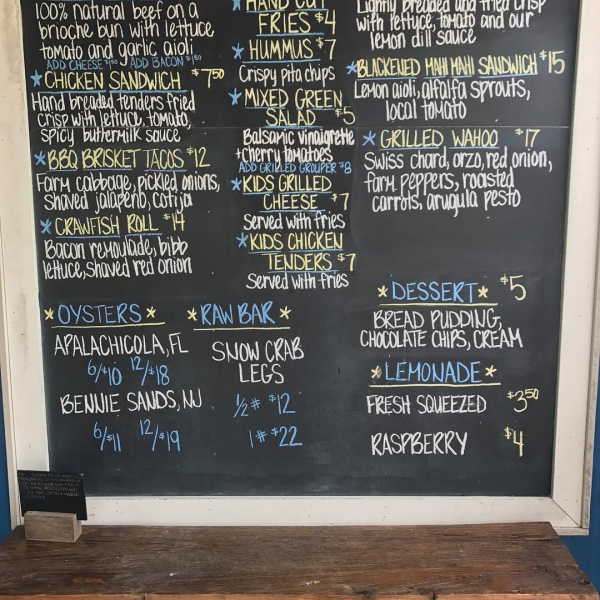 100% natural beef on a
brioche bun with lettuce
tomato and garlic aioli
ADD CHEESE $1.50 ADD BACON $1.50
CHICKEN SANDWICH $7.50
Hand breaded tenders fried
crisp with lettuce, tomato,
spicy buttermilk sauce
BBQ BRISKET TACOS $12
Farm cabbage, pickled onions,
shaved jalapeno, cotija
CRAWFISH ROLL $14
Bacon remoulade, bibb
lettuce, shaved red onion
HAND CUT
FRIES $4
HUMMUS $7
Crispy pita chips
MIXED GREEN
SALAD $5
Balsamic vinaigrette
+cherry tomatoes
ADD GRILLED GROUPER $8
KIDS GRILLED
CHEESE $7
Served with fries
KIDS CHICKEN
TENDERS $7
Served with fries
Lightly breaded and fried crisp
with lettuce, tomato and our
lemon dill sauce
BLACKENED MAHI MAHI SANDWICH $15
Lemon aioli, alfalfa sprouts,
local tomato
GRILLED WAHOO $17
Swiss chard, orzo, red onion,
farm peppers, roasted
carrots, arugula pesto
OYSTERS
APALACHICOLA, FL
6/$10 12/$18
BENNIE SANDS, NJ
6/$11 12/$19
RAW BAR
SNOW CRAB
LEGS
1/2# $12
1# $22
DESSERT $5
BREAD PUDDING,
CHOCOLATE CHIPS, CREAM
LEMONADE
FRESH SQUEEZED $3.50
RASPBERRY $4